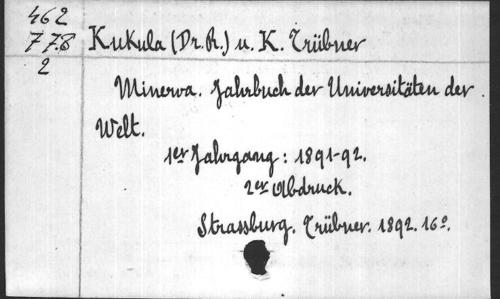 462
778
2
Kukula (Dr. R.) u. K. Trübner
Minerva. Jahrbuch der Universitäten der
Welt.
1er Jahrgang: 1891-92.
2er Abdruck.
Strassburg. Trübner. 1892. 16º.